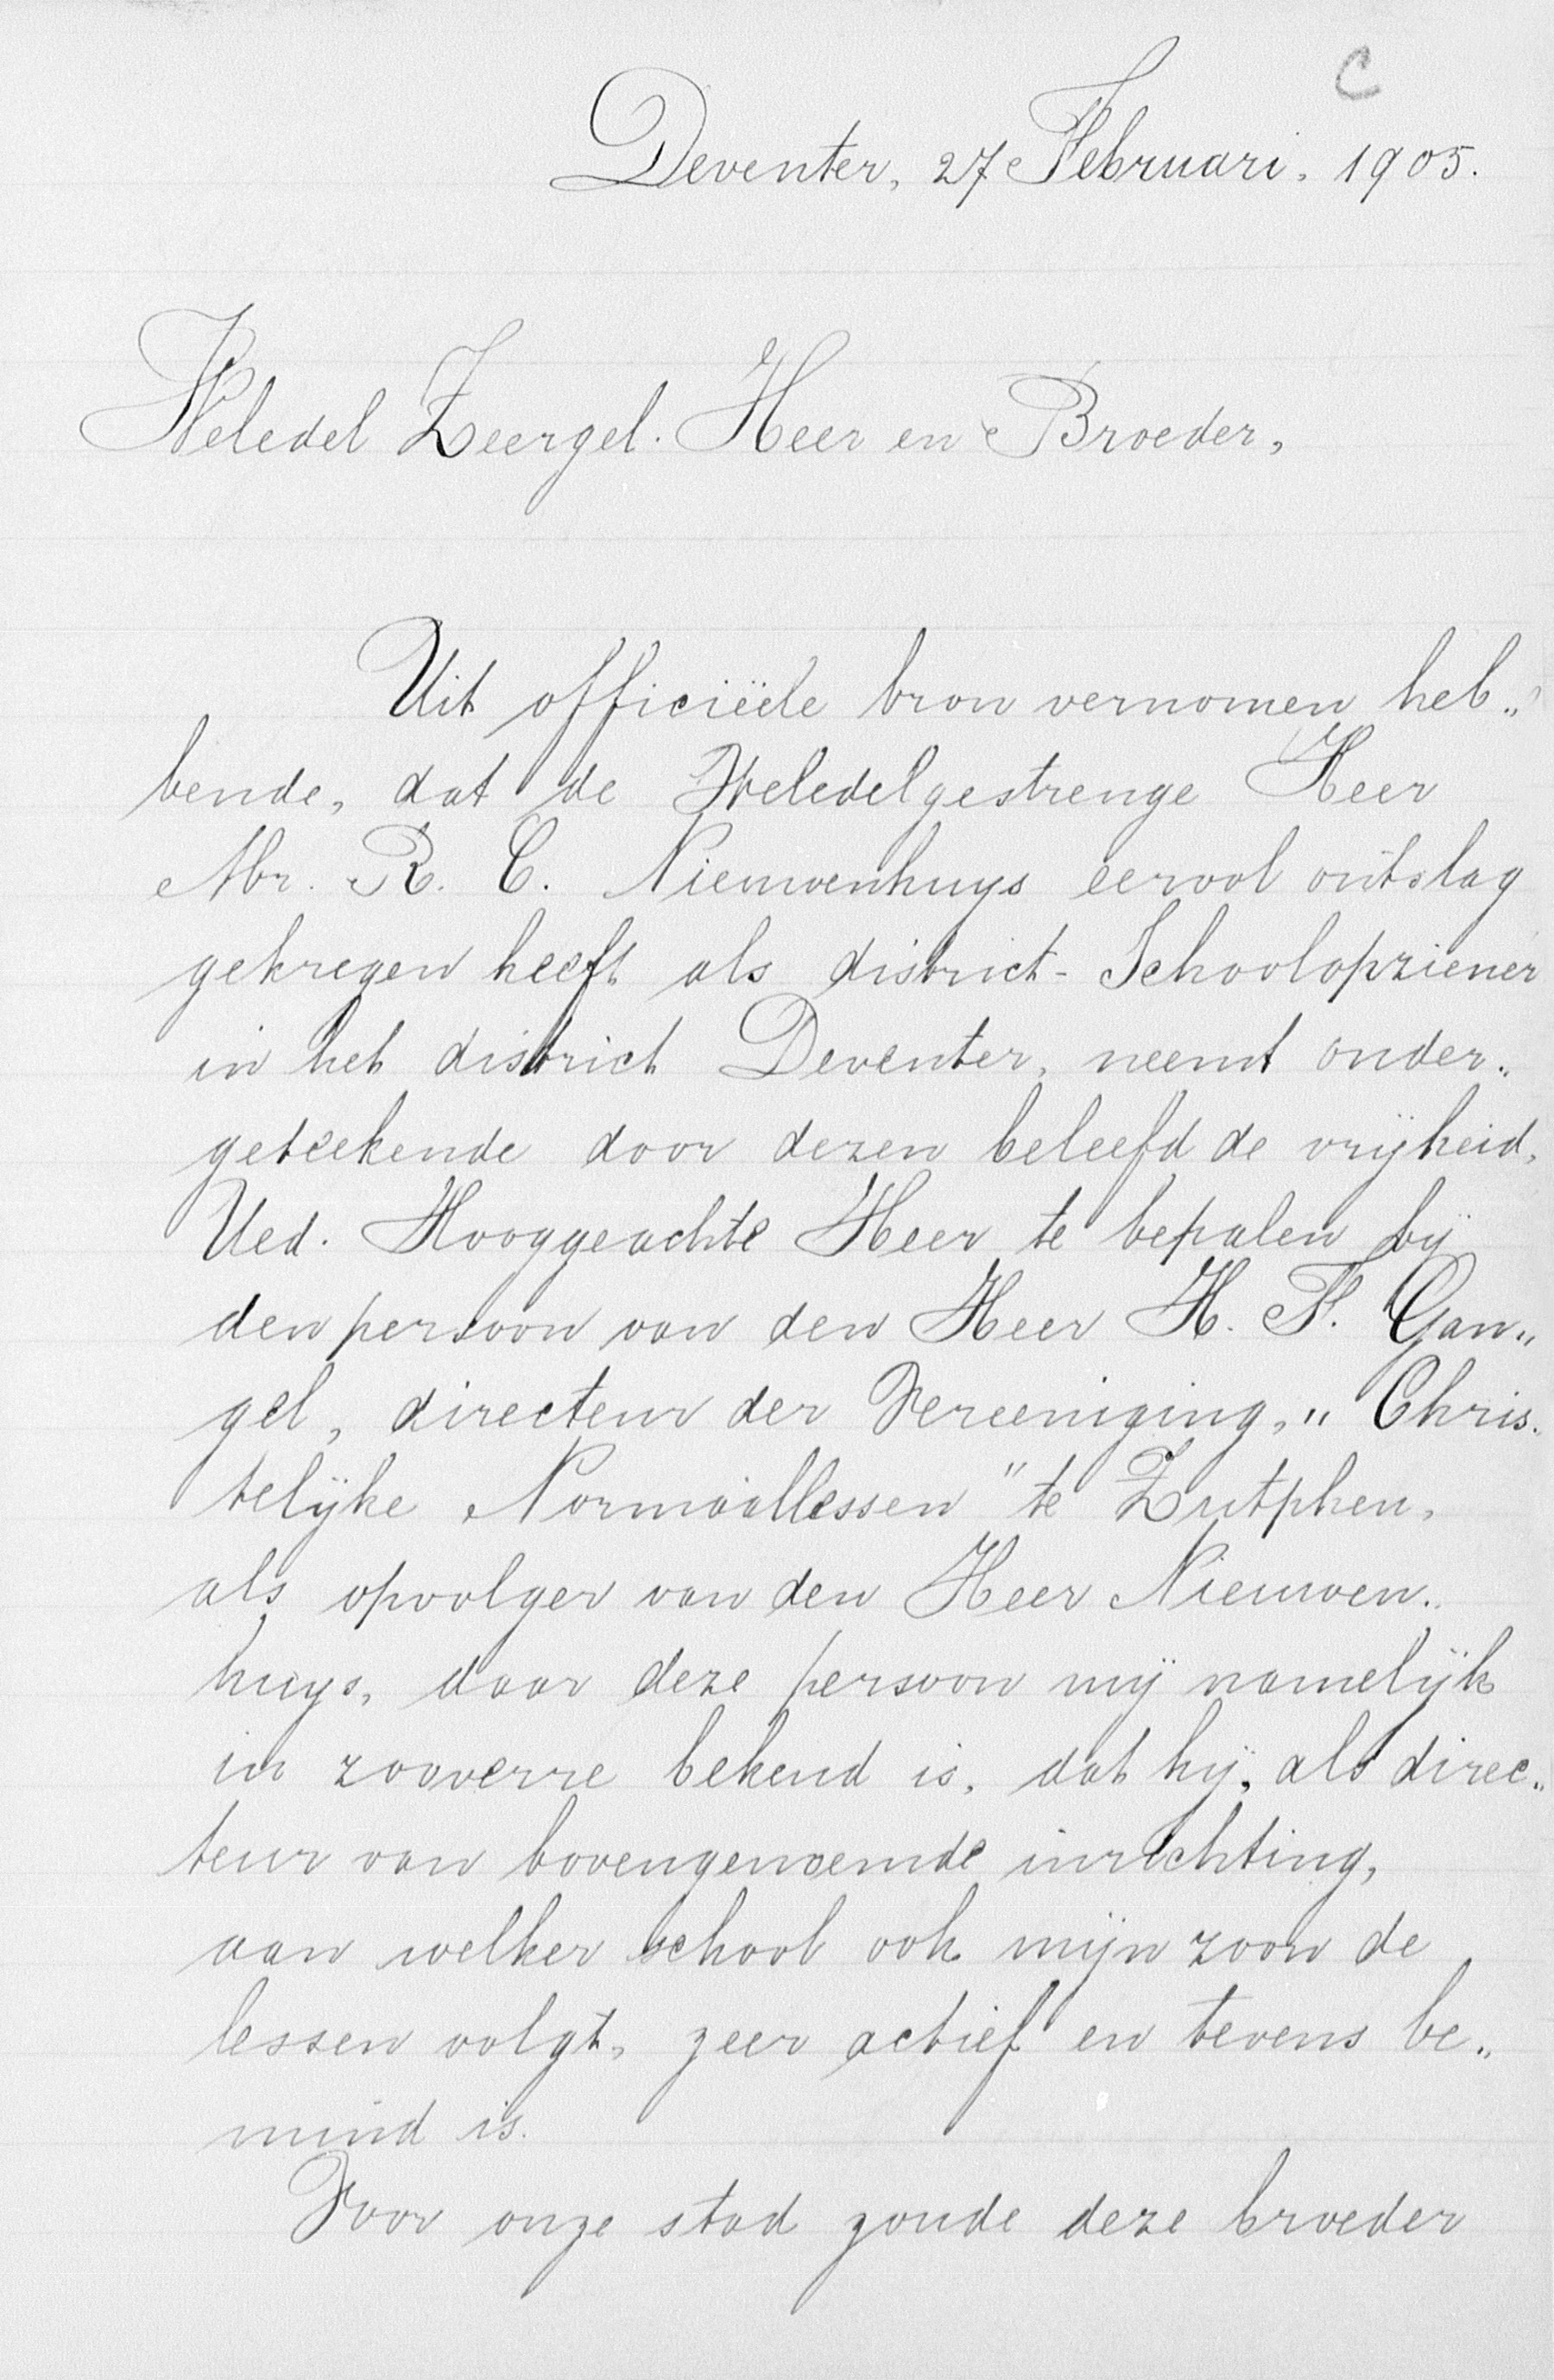 C
Deventer, 27 Februari, 1905.
Weledel Zeergel. Heer en Broeder,
Uit officiëele bron vernomen heb„
bende, dat de Weledelgestrenge Heer
Mr. R. C. Nieuwenhuys eervol ontslag
gekregen heeft als district- Schoolopziener
in het district Deventer, neemt onder„
geteekende door dezen beleefd de vrijheid,
Ued. Hooggeachte Heer te bepalen bij
den persoon van den Heer H. F. Gan„
gel, directeur der Vereeniging, „Chris„
telijke Normaallessen" te Zutphen,
als opvolger van den Heer Nieuwen„
huys, daar deze persoon mij namelijk
in zooverre bekend is, dat hij, als direc„
teur van bovengenoemde inrichting,
aan welker school ook mijn zoon de
lessen volgt, zeer actief en tevens be„
mind is.
Voor onze stad zoude deze broeder